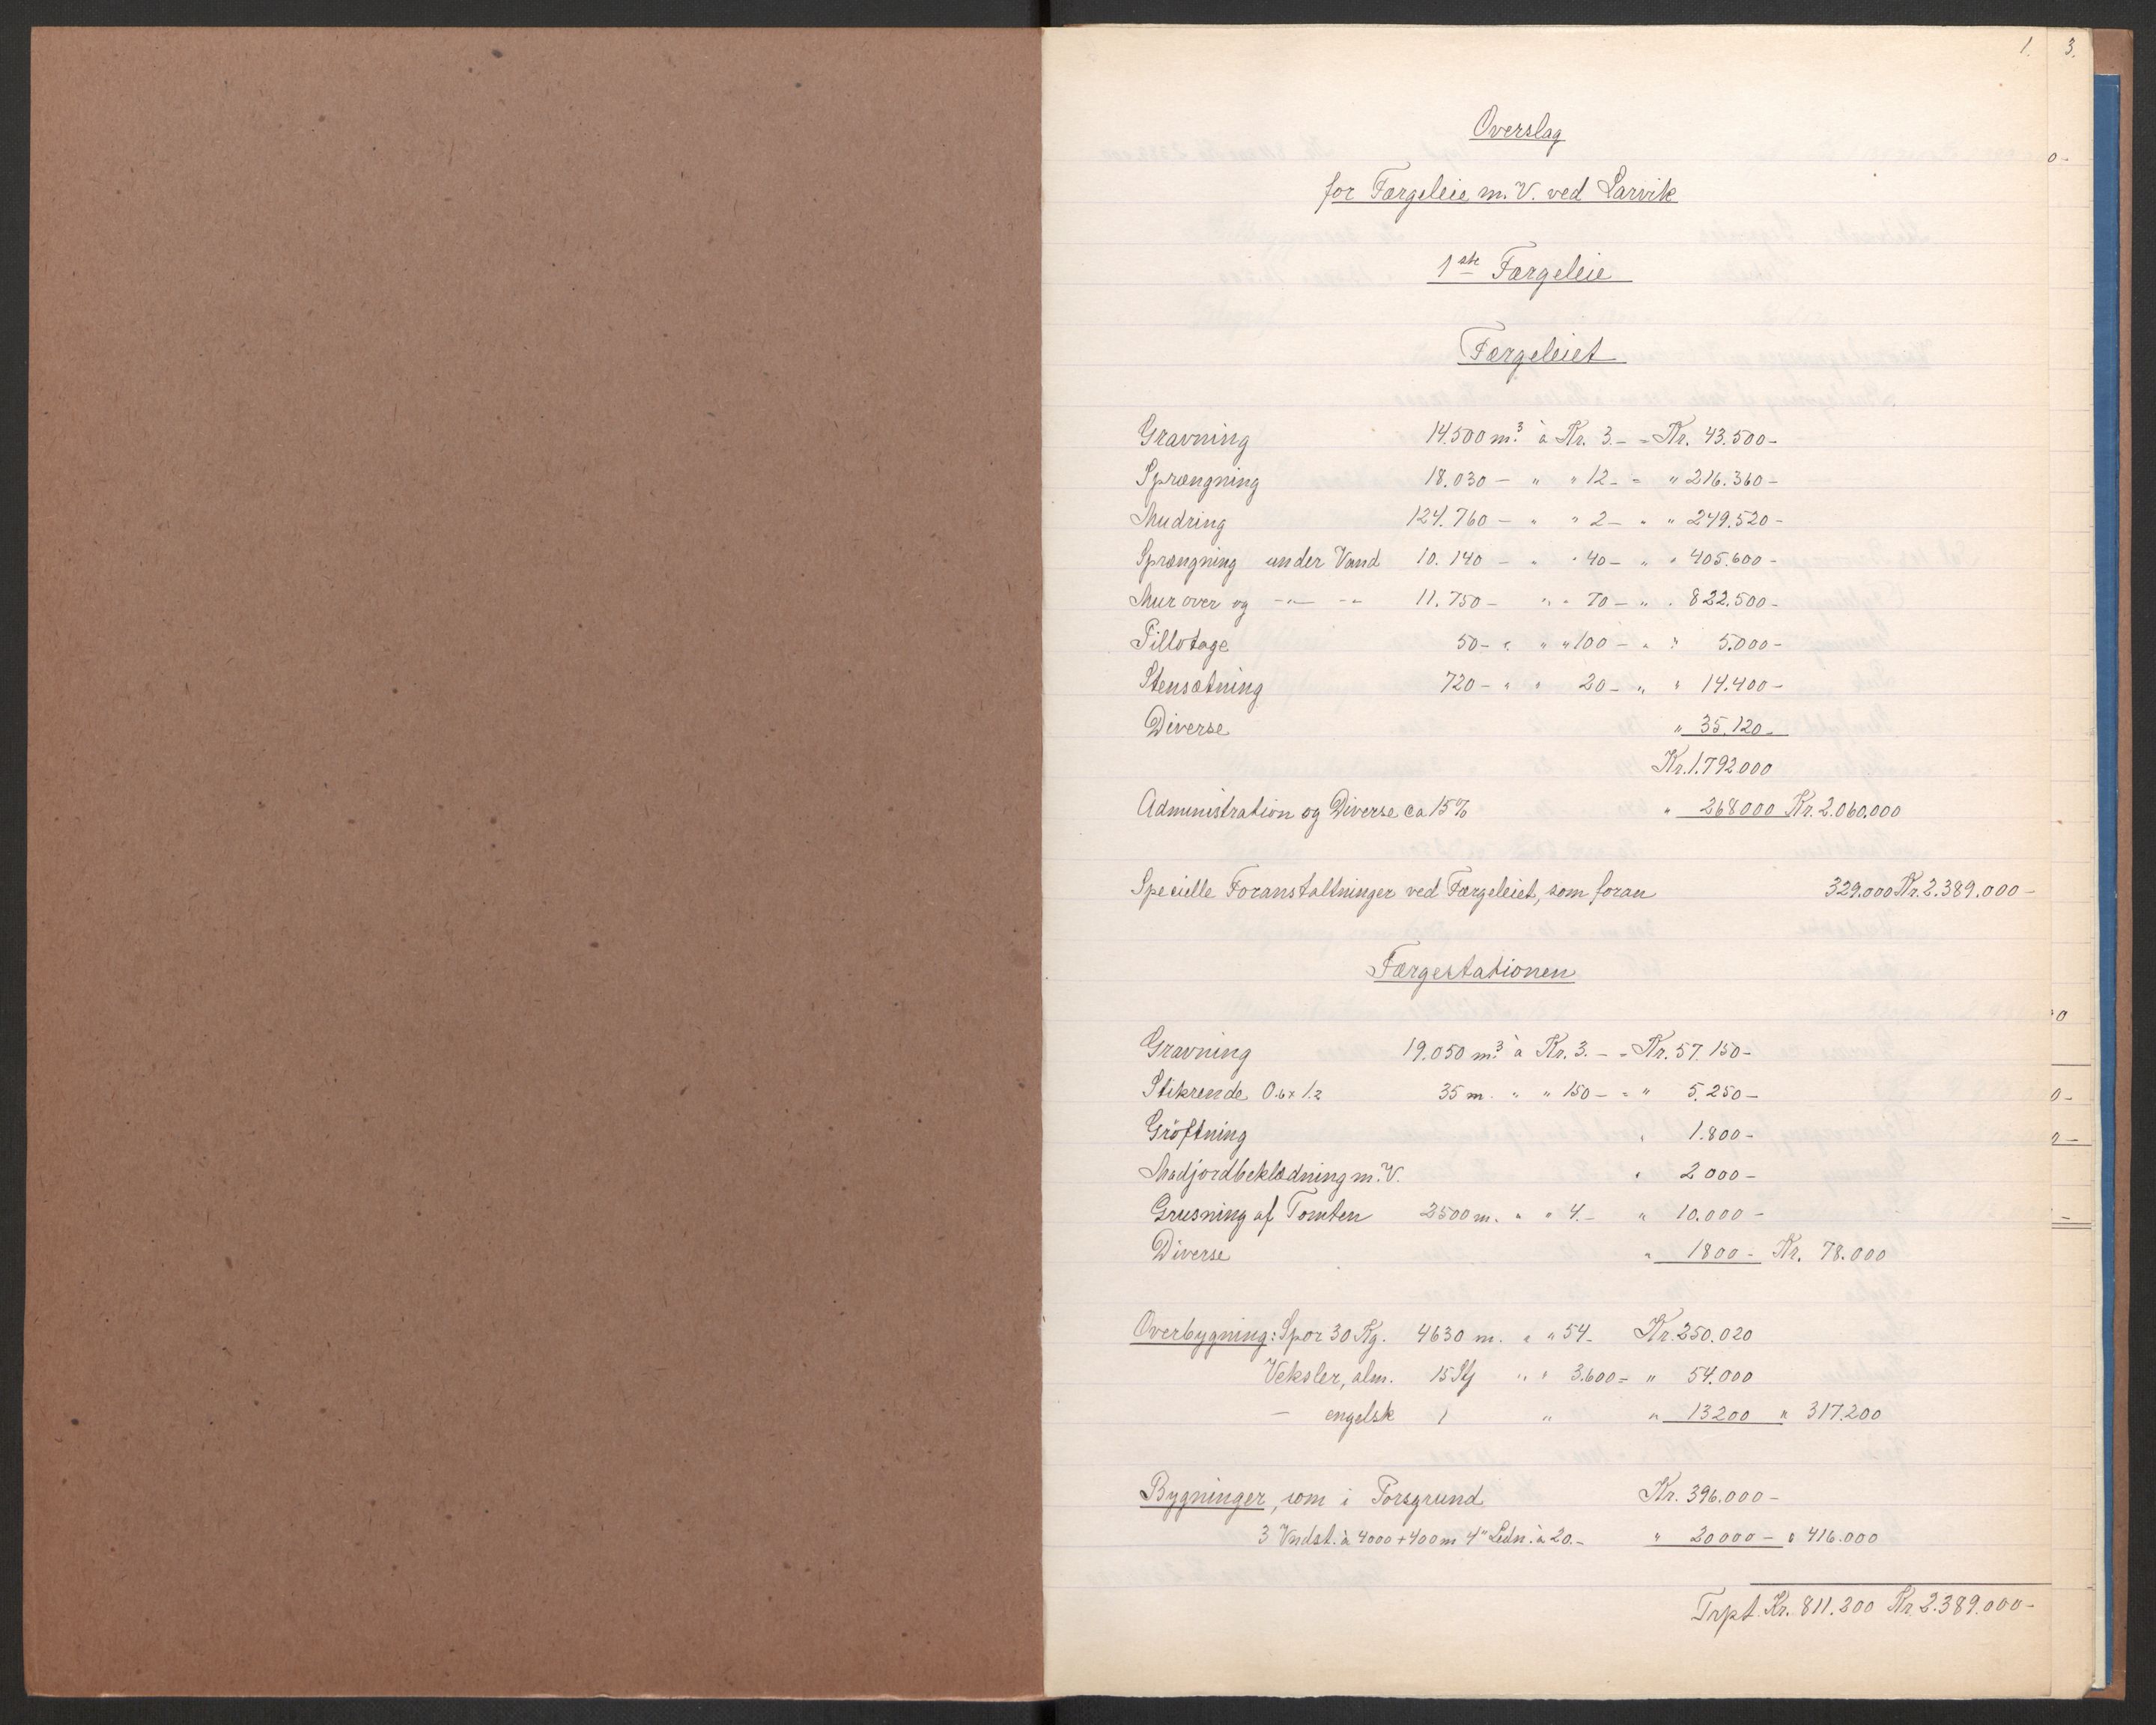 1. 3.
Overslag
for Færgeleie m.V. ved Larvik
1ste Færgeleie
Færgeleiet
Gravning 14.500 m.3 à Kr. 3.- = Kr. 43.500-
Sprængning 18.030 - " " 12- = " 216.360-
Mudring 124.760 - " " 2- " " 249.520-
Sprængning under Vand 10.140 - " " 40- " " 405.600-
Mur over og -"- -"- 11.750 - " " 70- " " 822.500-
Pillotage 50- " " " 100- " " 5.000-
Stensætning 720- " " 20- " " 14.400-
Diverse " 35.120-
Kr. 1.792000
Administration og Diverse ca 15% " 268000 Kr. 2.060.000
Specielle Foranstaltninger ved Færgeleiet, som foran 329.000 Kr. 2.389.000-
Færgestationen
Gravning 19.050 m.3 à Kr. 3.- = Kr. 57.150-
Stikrende 0.6x1.2 35 m. " " 150- = " 5.250-
Gröftning " 1.800-
Madjordbeklædning m.V. " 2000-
Grusning af Tomten 2500 m. " " 4.- " 10.000-
Diverse " 1800- Kr. 78.000
Overbygning: Spor 30 Kg. 4630 m. " " 54- Kr. 250.020
Veksler, alm. 15 Stg " " 3.600- " 54.000
- engelsk 1 " " 13200 " 317.200
Bygninger, som i Porsgrund Kr. 396.000-
3 Vndst. à 4000 + 400 m 4" Ledn. à 20.- " 20000- " 416.000
Trpt. Kr. 811.200 Kr. 2.389.000-